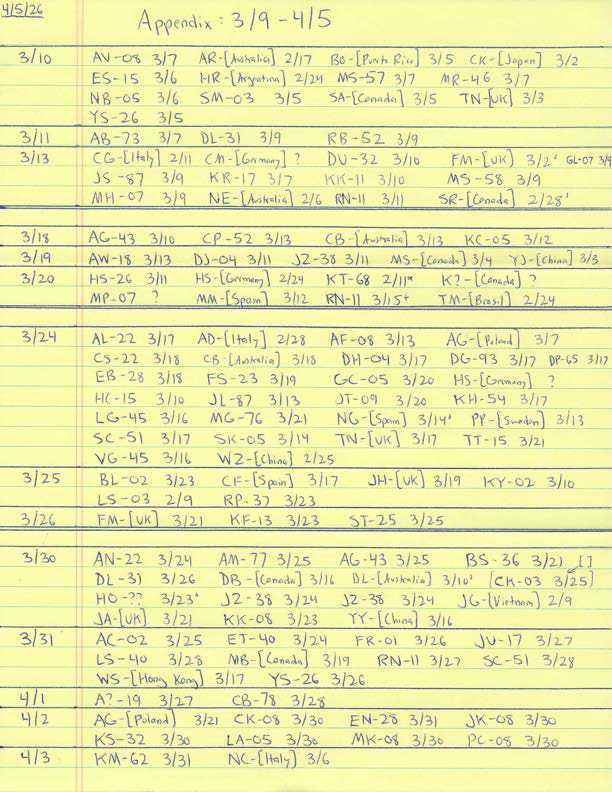 4/5/26
Appendix: 3/9 - 4/5
3/10 AV-08 3/7 AR-[Australia] 2/17 BO-[Puerto Rico] 3/5 CK-[Japan] 3/2
ES-15 3/6 HR-[Argentina] 2/24 MS-57 3/7 MR-46 3/7
NB-05 3/6 SM-03 3/5 SA-[Canada] 3/5 TN-[UK] 3/3
YS-26 3/5
3/11 AB-73 3/7 DL-31 3/9 RB-52 3/9
3/13 CG-[Italy] 2/11 CM-[Germany] ? DU-32 3/10 FM-[UK] 3/2' GL-07 3/9
JS-87 3/9 KR-17 3/7 KK-11 3/10 MS-58 3/9
MH-07 3/9 NE-[Australia] 2/6 RN-11 3/11 SR-[Canada] 2/28'
3/18 AG-43 3/10 CP-52 3/13 CB-[Australia] 3/13 KC-05 3/12
3/19 AW-18 3/13 DJ-04 3/11 JZ-38 3/11 MS-[Canada] 3/4 YJ-[China] 3/3
3/20 HS-26 3/11 HS-[Germany] 2/24 KT-68 2/11* K?-[Canada] ?
MP-07 ? MM-[Spain] 3/12 RN-11 3/15+ TM-[Brasil] 2/24
3/24 AL-22 3/17 AD-[Italy] 2/28 AF-08 3/13 AG-[Poland] 3/7
CS-22 3/18 CB-[Australia] 3/18 DH-04 3/17 DG-93 3/17 DP-65 3/17
EB-28 3/18 FS-23 3/19 GC-05 3/20 HS-[Germany] ?
HC-15 3/10 JL-87 3/13 JT-09 3/20 KH-54 3/17
LG-45 3/16 MG-76 3/21 NG-[Spain] 3/14' PP-[Sweden] 3/13
SC-51 3/17 SK-05 3/14 TN-[UK] 3/17 TT-15 3/21
VG-45 3/16 WZ-[China] 2/25
3/25 BL-02 3/23 CF-[Spain] 3/17 JH-[UK] 3/19 KY-02 3/10
LS-03 2/9 RP-37 3/23
3/26 FM-[UK] 3/21 KF-13 3/23 ST-25 3/25
3/30 AN-22 3/24 AM-77 3/25 AG-43 3/25 BS-36 3/21 []
DL-31 3/26 DB-[Canada] 3/16 DL-[Australia] 3/10' [CK-03 3/25]
HO-?? 3/23* JZ-38 3/24 JZ-38 3/24 JG-[Vietnam] 2/9
JA-[UK] 3/21 KK-08 3/23 YY-[China] 3/16
3/31 AC-02 3/25 ET-40 3/24 FR-01 3/26 JU-17 3/27
LS-40 3/28 MB-[Canada] 3/19 RN-11 3/27 SC-51 3/28
WS-[Hong Kong] 3/17 YS-26 3/26
4/1 A?-19 3/27 CB-78 3/28
4/2 AG-[Poland] 3/21 CK-08 3/30 EN-28 3/31 JK-08 3/30
KS-32 3/30 LA-05 3/30 MK-08 3/30 PC-08 3/30
4/3 KM-62 3/31 NC-[Italy] 3/6